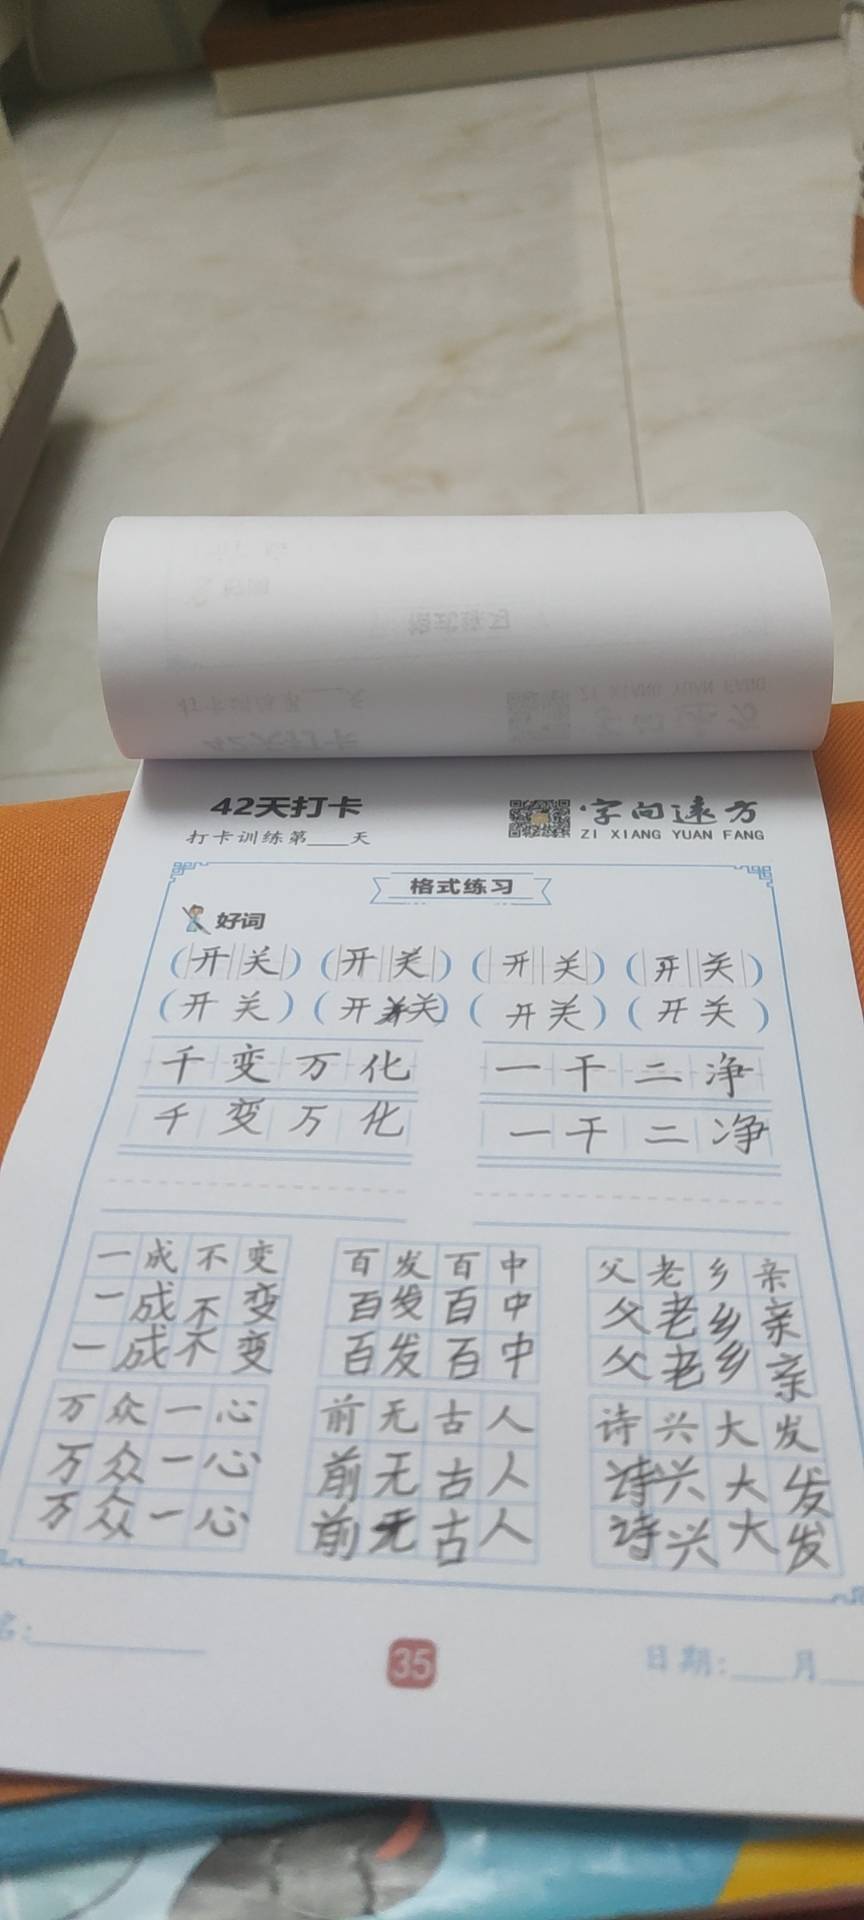 42天打卡
字向远方
打卡训练第____天
ZI XIANG YUAN FANG
格式练习
好词
(开关) (开关) (开关) (开关)
(开关) (开关) (开关) (开关)
千变万化 一干二净
千变万化 一干二净
一成不变 百发百中 父老乡亲
一成不变 百发百中 父老乡亲
一成不变 百发百中 父老乡亲
万众一心 前无古人 诗兴大发
万众一心 前无古人 诗兴大发
万众一心 前无古人 诗兴大发
名:________ 35 日期:____月